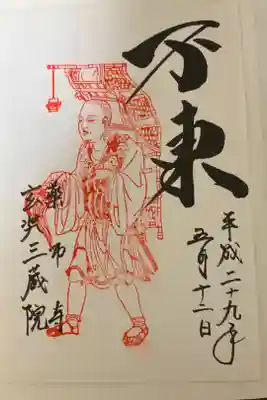 不東
平成二十九年
五月十二日
薬师寺
玄奘三蔵院